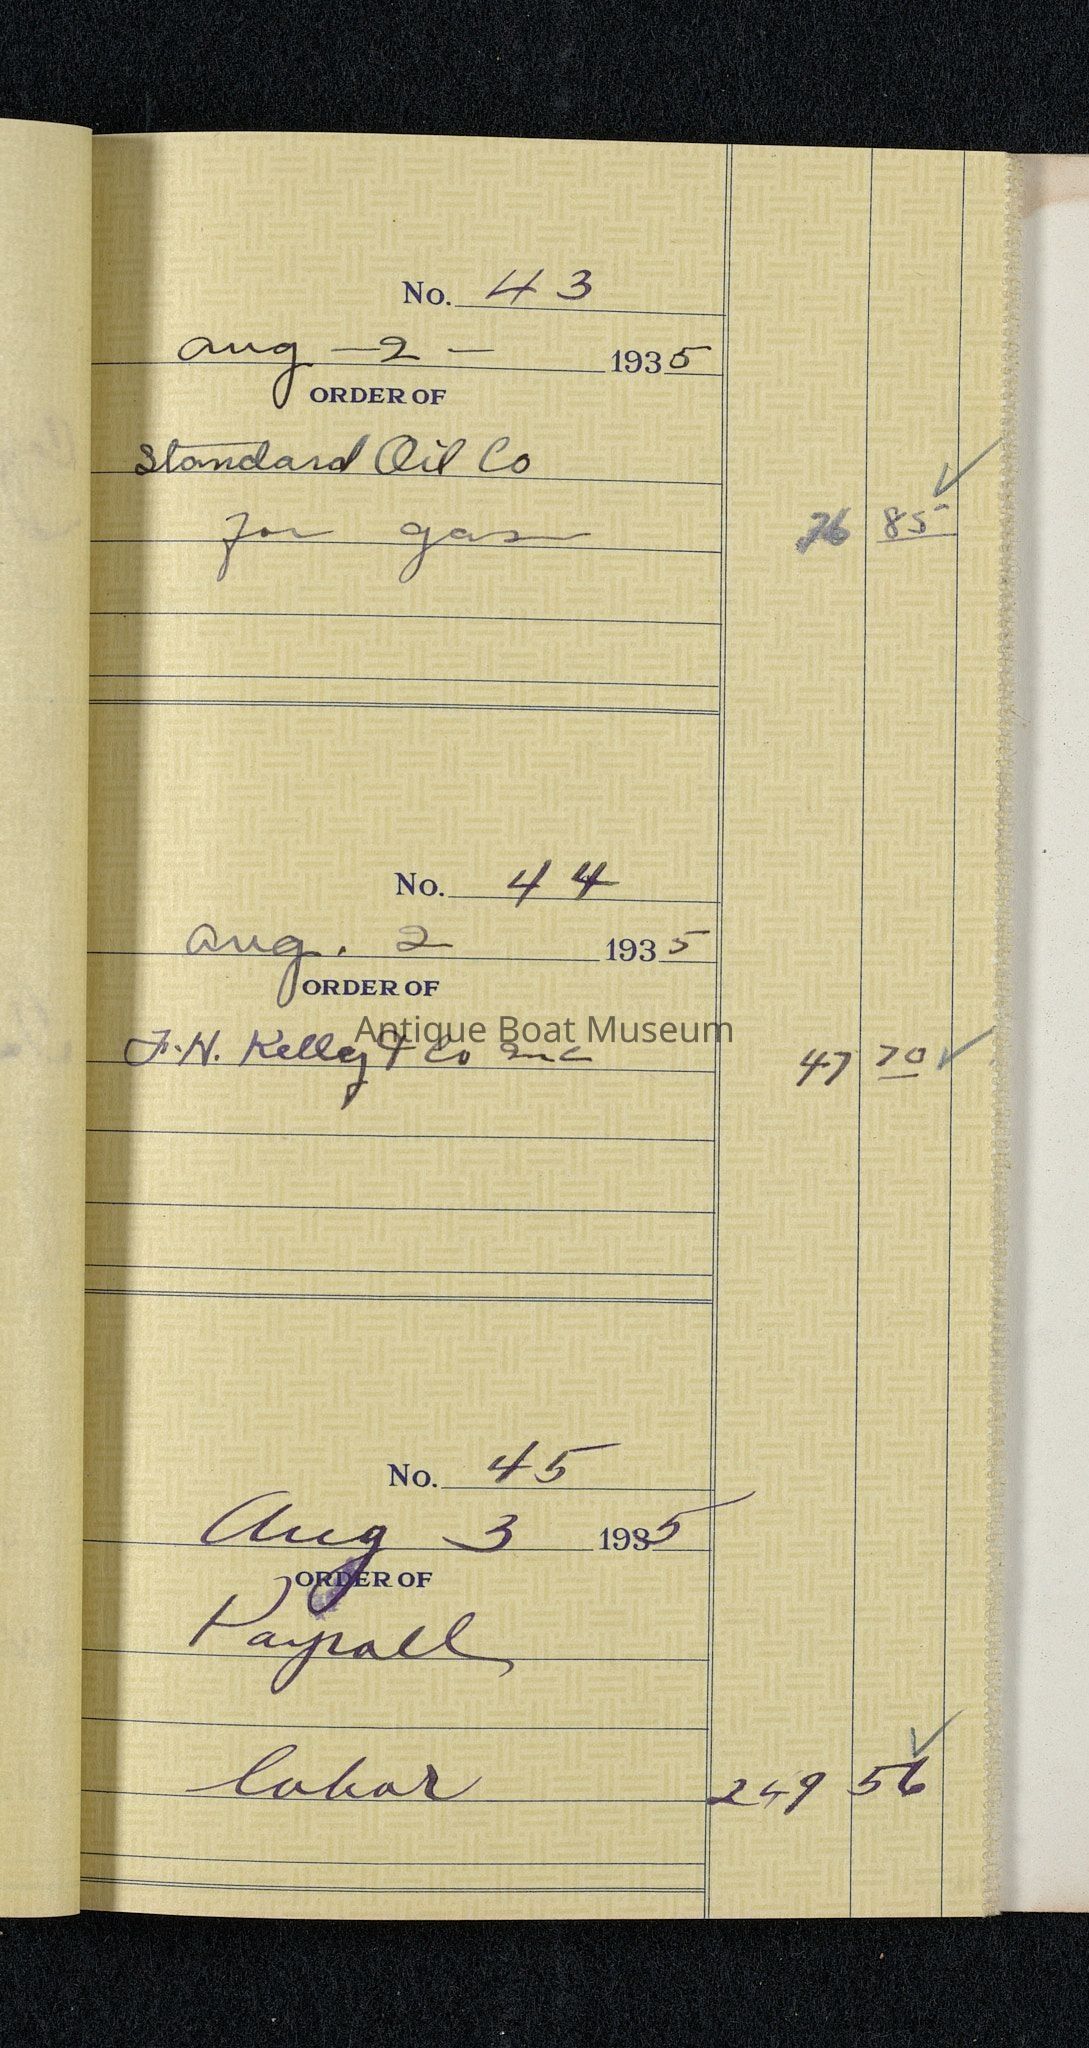 No. 43
Aug - 2 - 1935
ORDER OF
Standard Oil Co
for gas 76 85
No. 44
Aug. 2 1935
ORDER OF
Antique Boat Museum
F.H. Kelley & Co Inc 47 70
No. 45
Aug 3 1935
ORDER OF
Payroll
labor 249 56